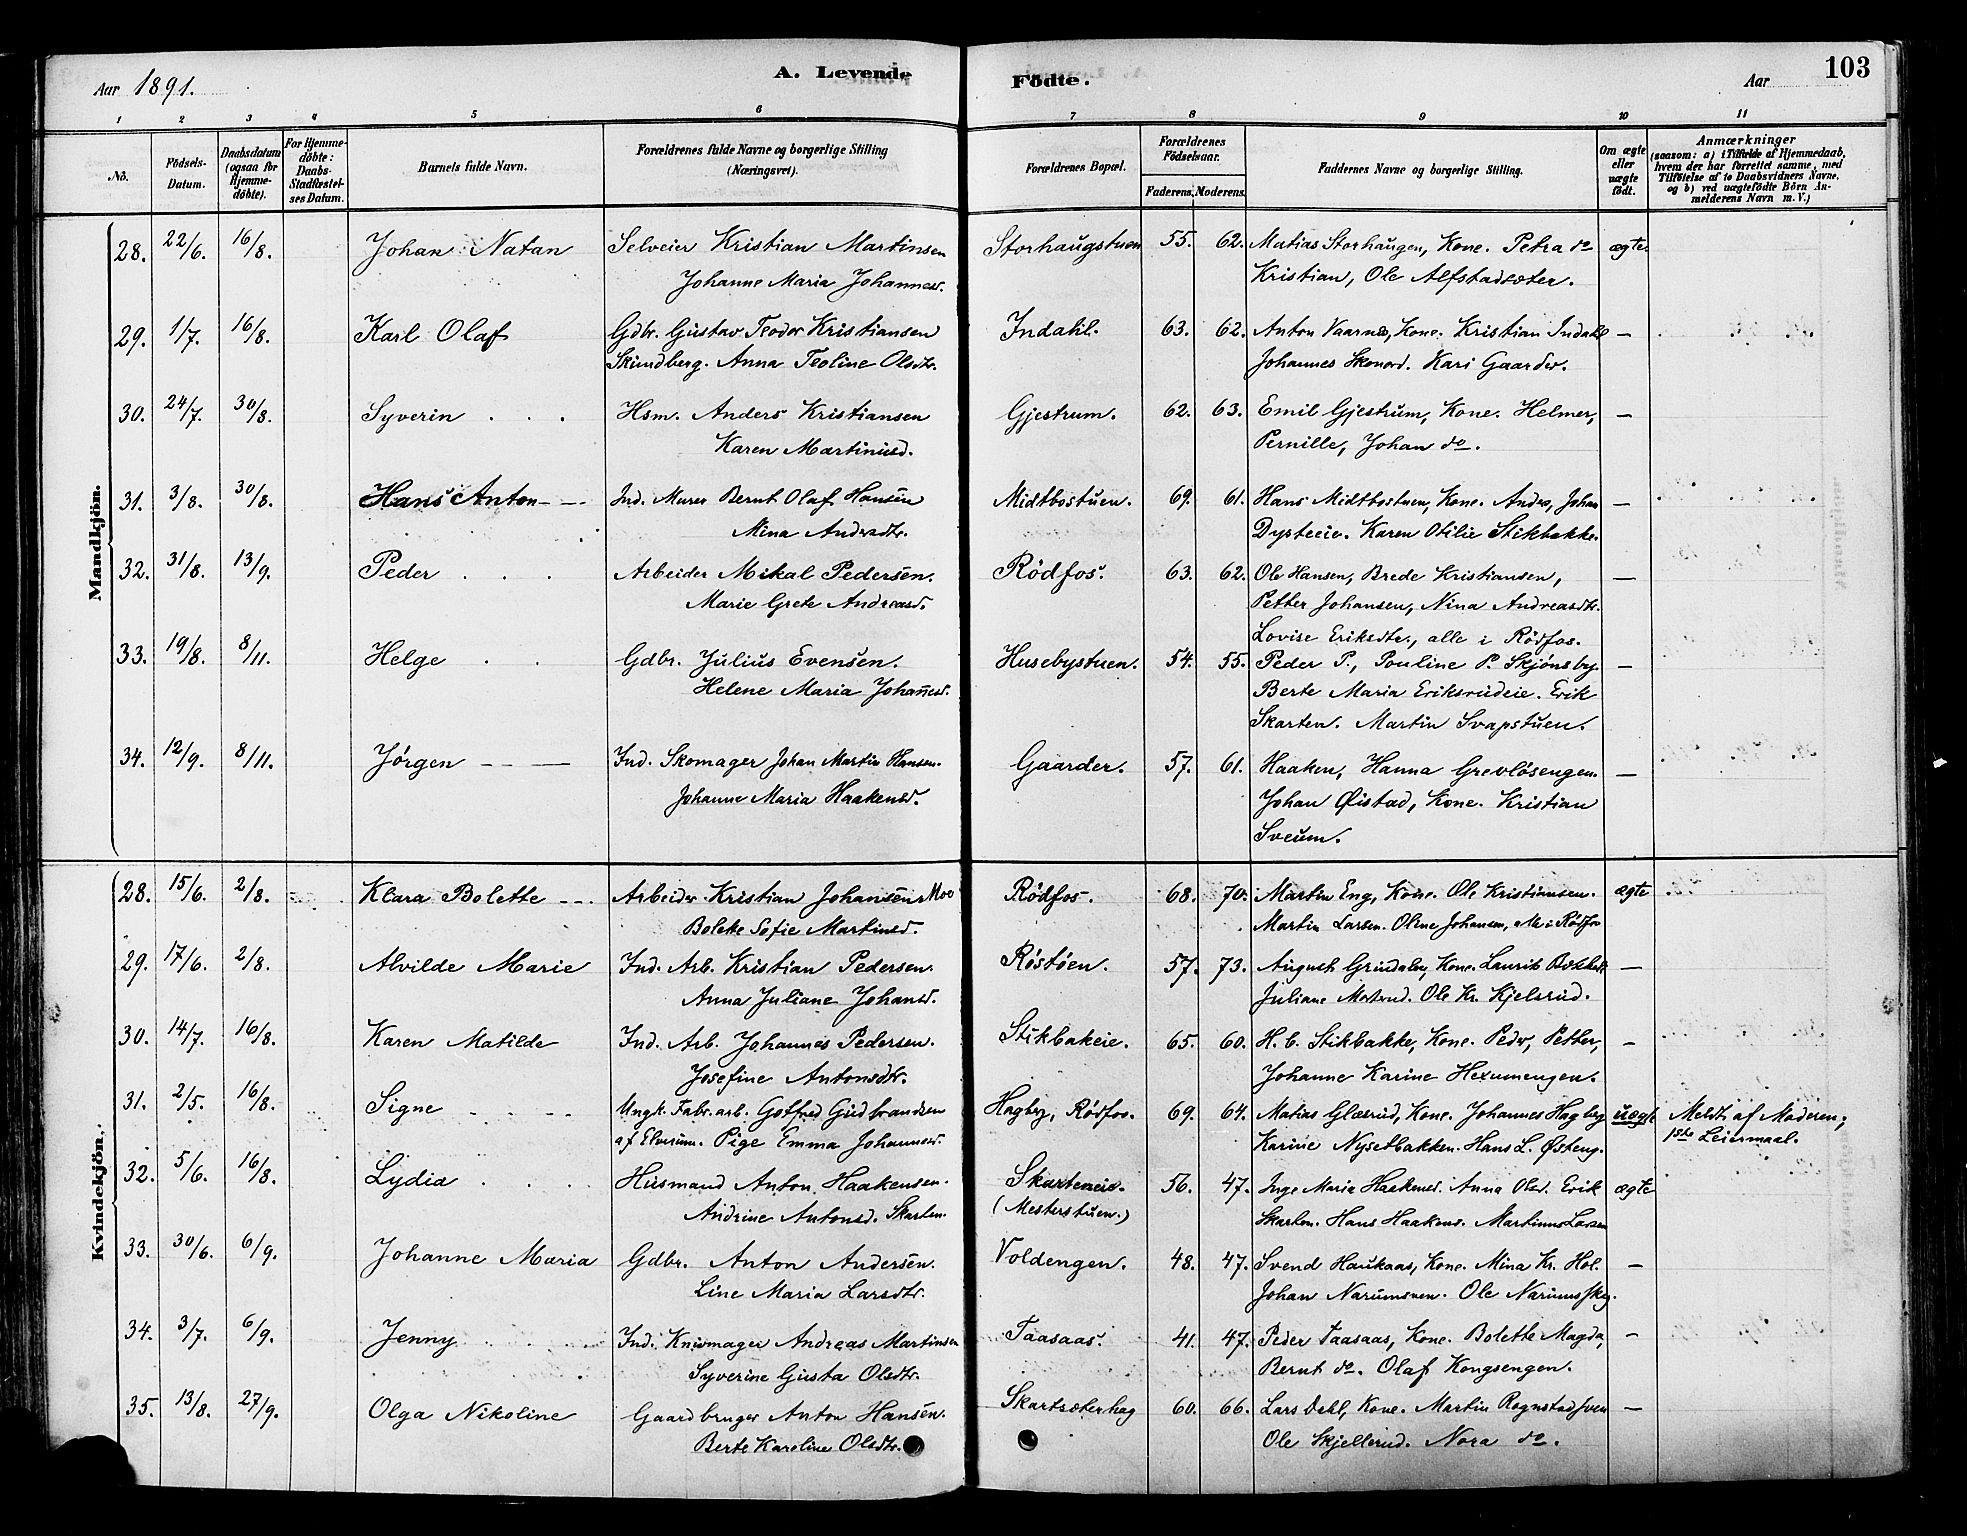 Aar 1891.
A. Levende
Födte.
Aar
103
1 2 3 4 5 6 7 8 9 10 11
No.
Födsels-Datum.
Daabsdatum (ogsaa for Hjemme-döbte).
For Hjemme-döbte: Daabs-Stadfæstel-ses Datum.
Barnets fulde Navn.
Forældrenes fulde Navne og borgerlige Stilling (Næringsvei).
Forældrenes Bopæl.
Forældrenes Födselsaar.
Faderens. Moderens.
Faddernes Navne og borgerlige Stilling.
Om ægte eller uægte födt.
Anmærkninger
(saasom: a) i Tilfælde af Hjemmedaab, hvem der har forrettet samme, med Tilföielse af to Daabsvidners Navne, og b) ved uægtefödte Börn An-melderens Navn m. V.)
Mandkjön.
28. 22/6. 16/8. Johan Natan Selveier Kristian Martinsen Storhaugstuen 55. 62. Matias Storhaugen, Kone. Petra do ægte
Johanne Maria Johannesd. Kristian, Ole Alfstadsæter.
29. 1/7. 16/8. Karl Olaf Gdbr. Gustav Teodor Kristiansen Indahl. 63. 62. Anton Vaarnes, Kone. Kristian Indahl —
Skundberg. Anna Teoline Olsdtr. Johannes Skonord. Kari Gaarder.
30. 24/7. 30/8. Syverin Hsm. Anders Kristiansen Gjestrum. 62. 63. Emil Gjestrum, Kone. Helmer, —
Karen Martinusd. Pernille, Johan do.
31. 3/8. 30/8. Hans Anton Ind. Murer Bernt Olaf Hansen Midtbostuen. 69. 61. Hans Midtbostuen, Kone. Andrs, Johan —
Mina Andersdtr. Dysteeie. Karen Otilie Stikbakke.
32. 31/8. 13/9. Peder Arbeider Mikal Pedersen. Rödfos. 63. 62. Ole Hansen, Brede Kristiansen, —
Marie Grete Andreasd. Petter Johansen, Nina Andreasdtr.
Lovise Eriksdtr., alle i Rödfos.
33. 19/8. 8/11. Helge Gdbr. Julius Evensen. Husebystuen. 54. 55. Peder P., Pouline P. Skjønsby. —
Helene Maria Johannesd. Berte Maria Eriksrudeie. Erik
Skarten. Martin Svapstuen.
34. 12/9. 8/11. Jørgen Ind. Skomager Johan Martin Hansen. Gaarder. 57. 61. Haaken, Hanna Grevlösengen. —
Johanne Maria Haakensd. Johan Øistad, Kone. Kristian
Sveum.
Kvindekjön.
28. 15/6. 2/8. Klara Bolette Arbeider Kristian Johansen Moe Rödfos. 68. 70. Martin Eng, Kone. Ole Kristiansen. ægte
Bolette Sofie Martinsd. Martin Larsen. Oline Johansen, alle i Rödfos
29. 17/6. 2/8. Alvilde Marie Ind. Arb. Kristian Pedersen. Röstöen. 57. 73. August Grindalen, Kone. Laurits —
Anna Juliane Johansd. Juliane Ole Kr. Kjelsrud.
30. 14/7. 16/8. Karen Matilde Ind. Arb. Johannes Pedersen. Stikbakeie. 65. 60. H. C. Stikbakke, Kone. Peder, Petter, —
Josefine Antonsdtr. Johanne Karine Hexumengen.
31. 2/5. 16/8. Signe Ungk. Fabr. arb. Gotfred Gudbrandsen Hagby, Rödfos. 69. 64. Matias Glæsrud, Kone. Johannes Hagby uægte Meldt af Moderen;
af Elverum. Pige Emma Johannesd. Karine Nysetbakken. Hans L. Østeng. 1ste Leiermaal.
32. 5/6. 16/8. Lydia Husmand Anton Haakensen. Skarteneie. 56. 47. Inge Maria Haakensd. Anna Olsd. Erik ægte
Andrine Antonsd. Skarten. (Mesterstuen.) Skarten. Hans Haakens. Martinus Larsen
33. 30/6. 6/9. Johanne Maria Gdbr. Anton Andersen. Voldengen. 48. 47. Svend Haukaas, Kone. Mina Kr. Hol. —
Line Maria Larsdtr. Johan Narumsven. Ole Narums
34. 3/7. 6/9. Jenny Ind. Knivmager Andreas Martinsen Taasaas. 41. 47. Peder Taasaas, Kone. Bolette Magda, —
Syverine Gusta Olsdtr. Bernt do. Olaf Kongsengen.
35. 13/8. 27/9. Olga Nikoline Gaardbruger Anton Hansen. Skartsæterhag 60. 66. Lars Dehl, Kone. Martin Rognstad —
Berte Karoline Olsdtr. Ole Skjellerud. Nora do.